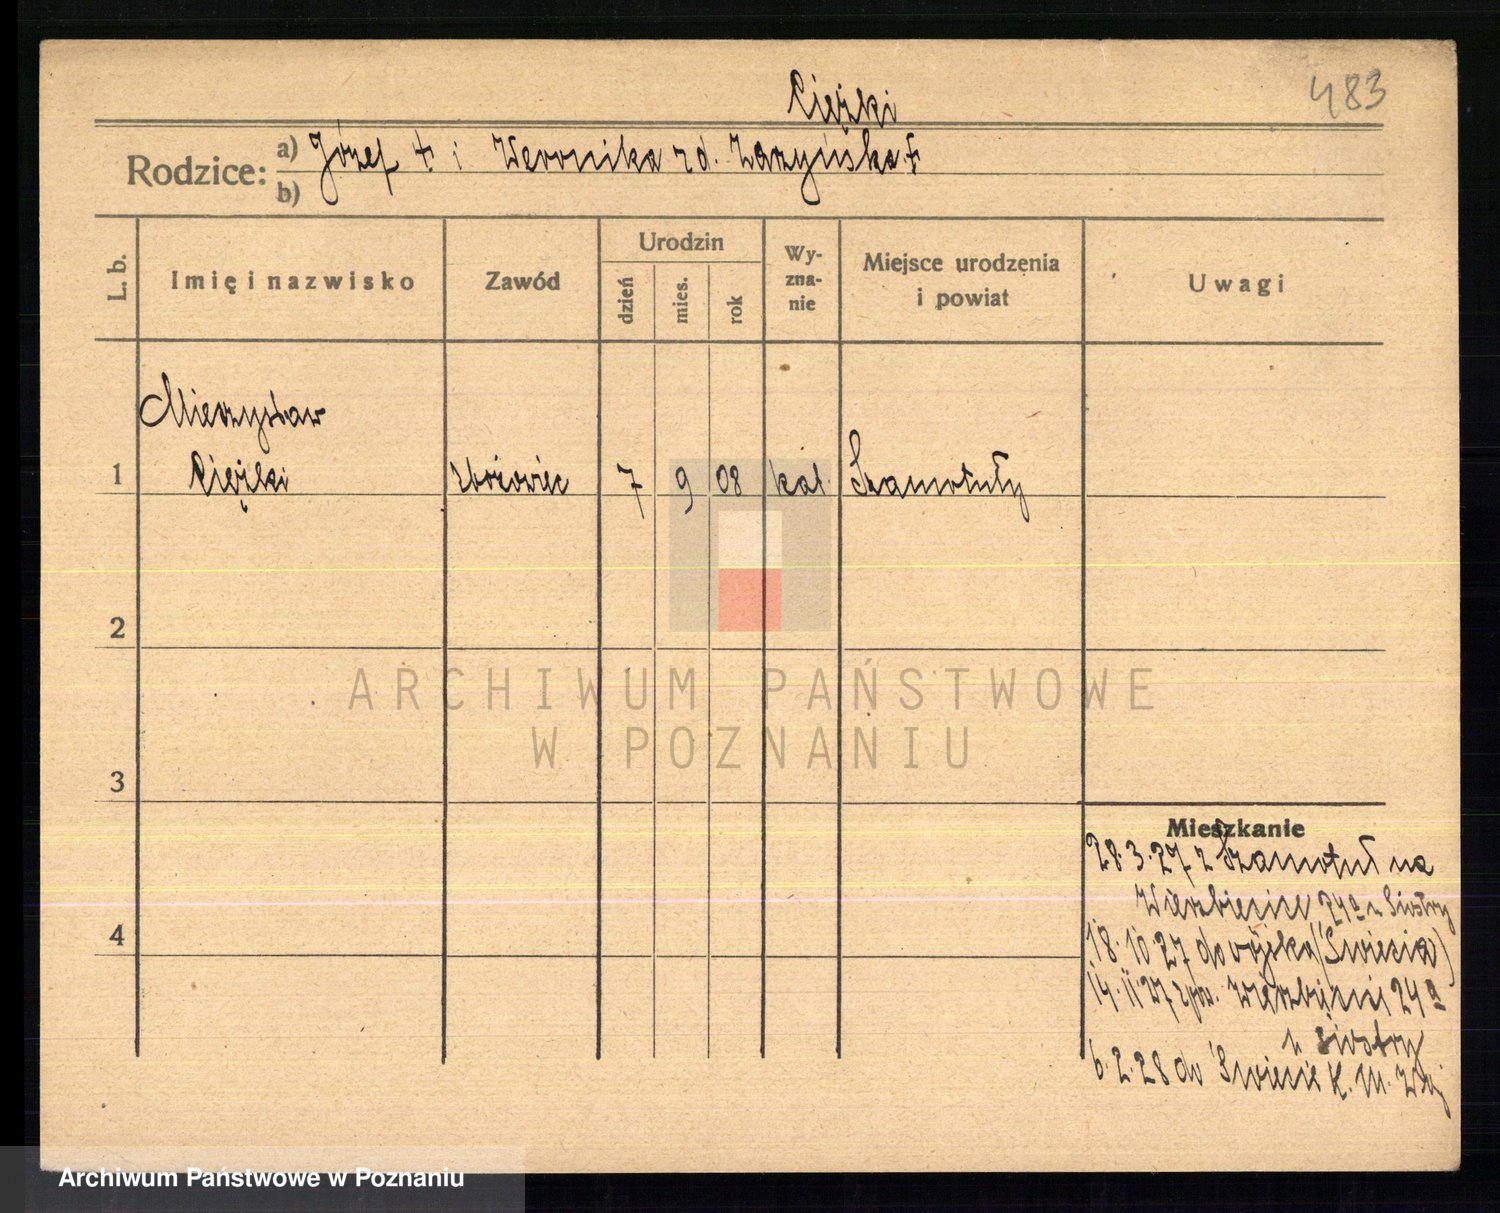 483
Ciężki
Rodzice: a) Józef + i Weronika zd. Zarzyńska +
b)
L. b.
Imię i nazwisko
Zawód
Urodzin
dzień
mies.
rok
Wy-
zna-
nie
Miejsce urodzenia
i powiat
Uwagi
Mieczysław
1 Ciężki zbożowiec 7 9 08 kat. Szamotuły
2
3
4
Mieszkanie
28.3.27 z Szamotuł na
Wierzbięcice 24a u Siostry
18.10.27 do wojska (Świecia)
14.11.27 Wierzbięcice 24a
u Siostry
6.2.28 do Świecie K. M.
ARCHIWUM PAŃSTWOWE
W POZNANIU
Archiwum Państwowe w Poznaniu